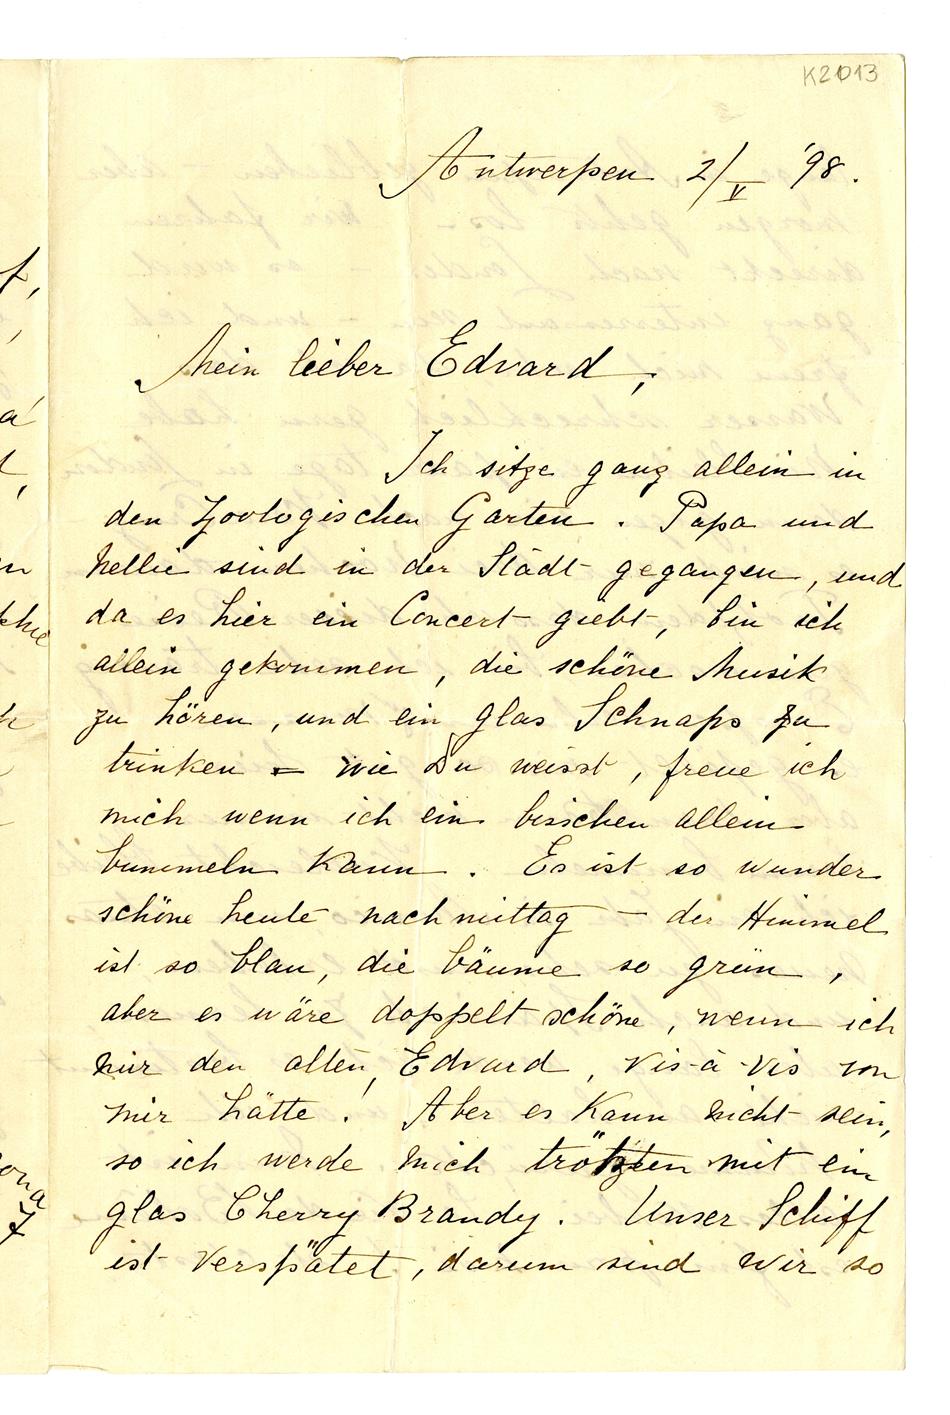 K2013
Antwerpen 2/V '98.
Mein lieber Edvard,
Ich sitze ganz allein in
den Zoologischen Garten. Papa und
Nellie sind in der Städt gegangen, und
da es hier ein Concert giebt, bin ich
allein gekommen, die schöne Musik
zu hören, und ein glas Schnaps zu
trinken = wie Du weisst, freue ich
mich wenn ich ein bisschen allein
bummeln kann. Es ist so wunder
schöne heute nachmittag — der Himmel
ist so blau, die bäume so grün,
aber es wäre doppelt schöne, wenn ich
nur den alten, Edvard, vis-à-vis von
mir hätte! Aber es kann nicht sein,
so ich werde mich trösten mit ein
glas Cherry Brandy. Unser Schiff
ist verspätet, darum sind wir so